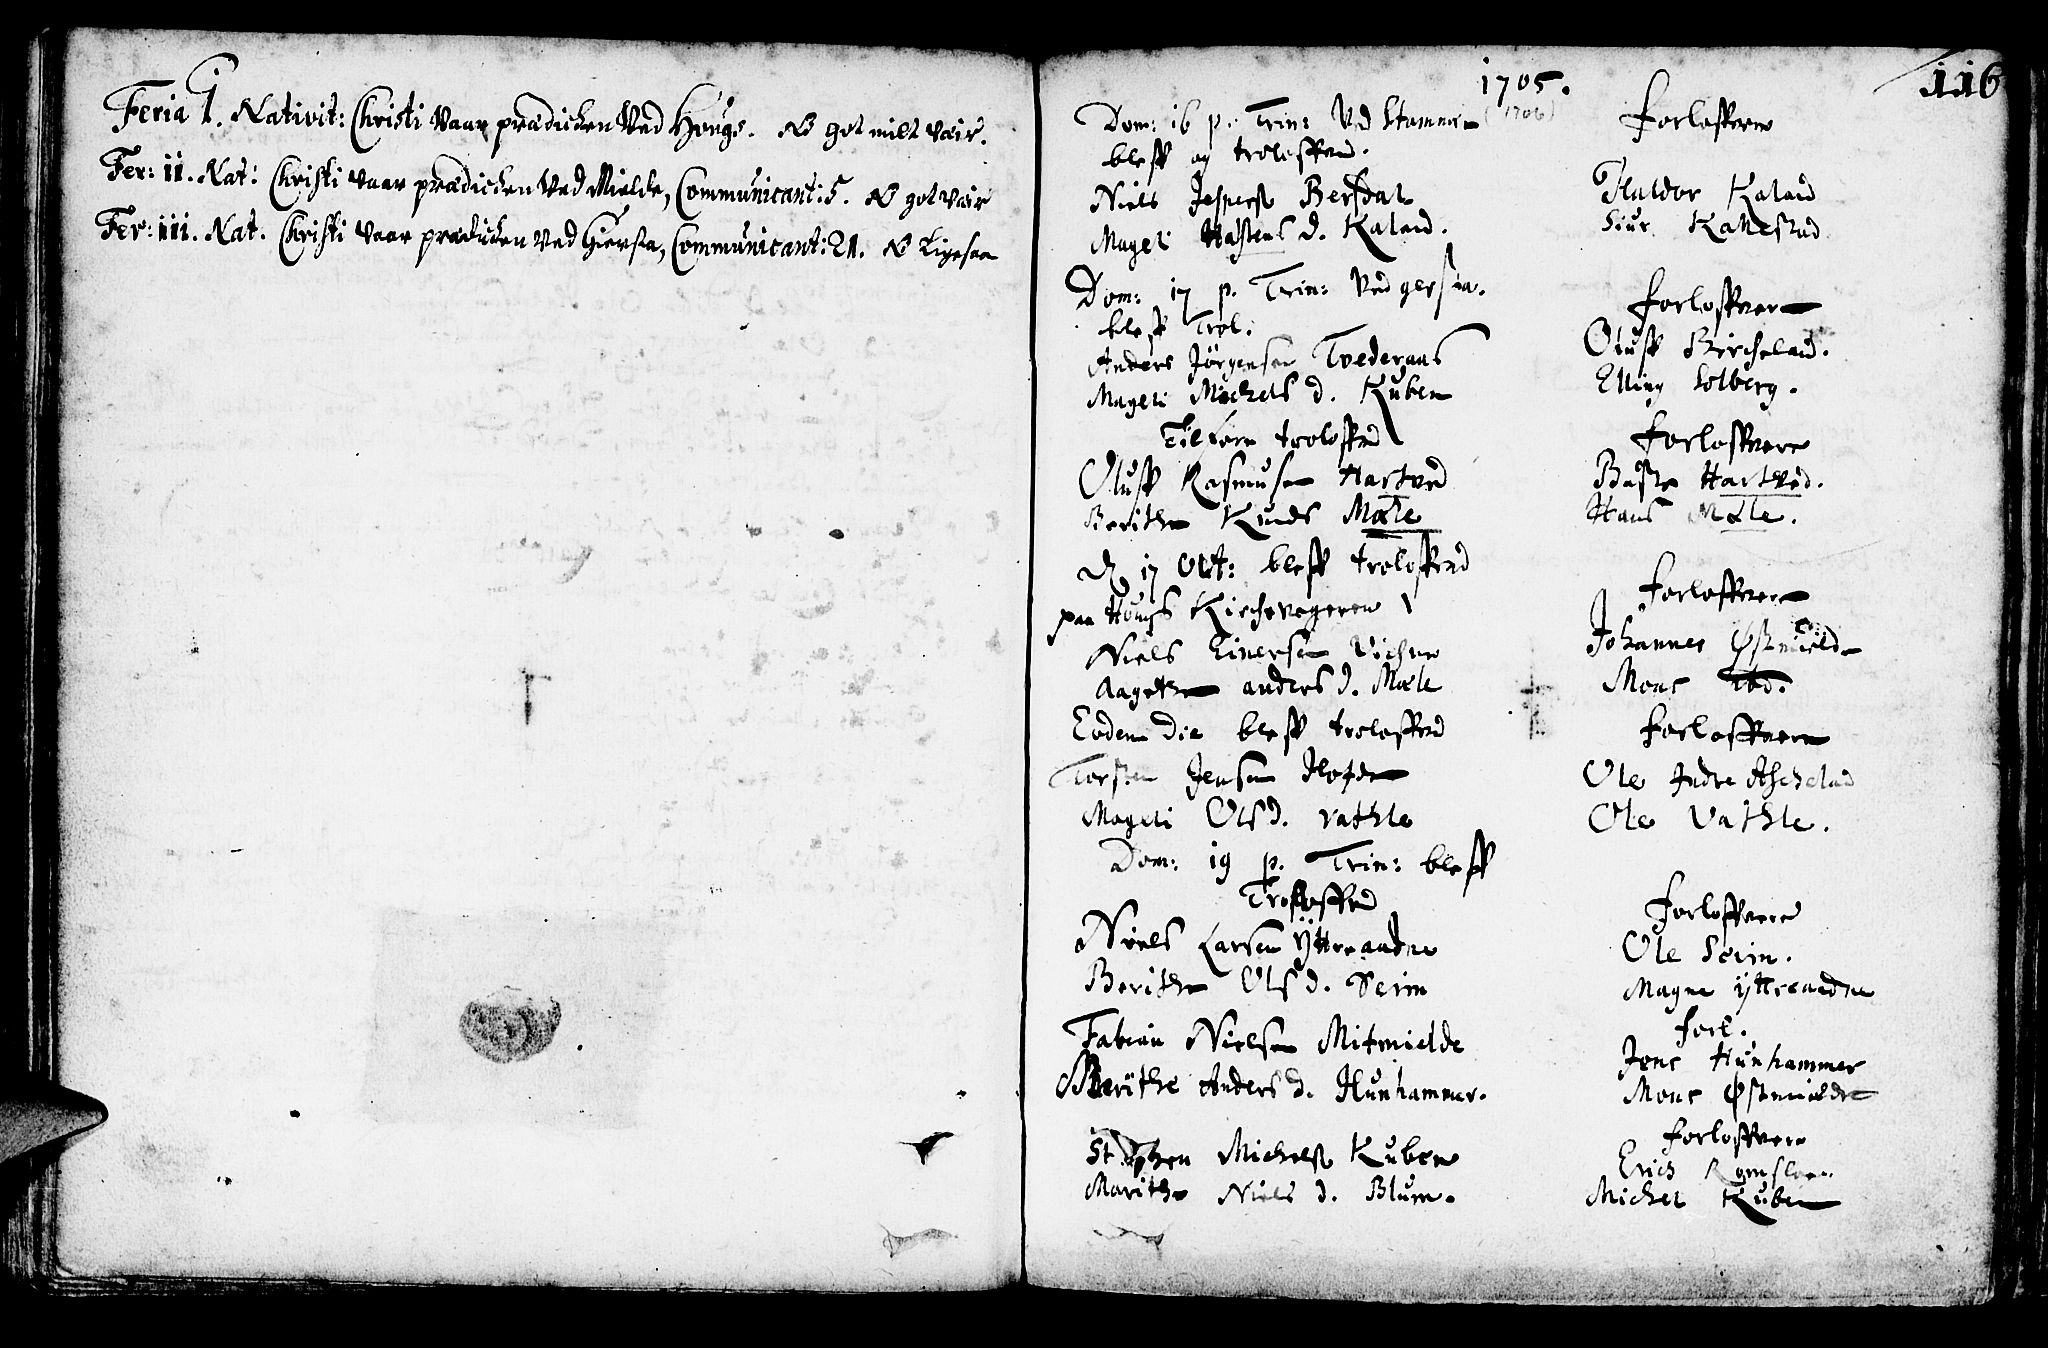 Feria 1. Nativit: Christi vaar prædicken ved Hougs. NB got milt vær.
Fer: ii. Nat: Christi vaar prædicken ved Mielde, Communicant: 5. NB got vær
Fer: iii. Nat. Christi vaar prædicken ved Giersta, Communicant: 21. NB ligesaa
116
1705.
(1706)
Dom: 16 p. Trin: ved Stamner
bleff og troloffved.
Niels Jespersø Bersdal
Mageli d. Kaland.
forloffvere
Haldor Kaland
Siur Kallestad
Dom: 17 p. Trin: ved gersta.
bleff Trol:
Anders Jörgensen Tvederaas
Mageli Michels d. Kuben
forloffvere
Oluff Bircheland.
Elling Solberg.
Tilforn troloffved
Oluff Rasmusen Hartved
Berithe Knuds Mæle
forloffvere
Hartved.
Hans Mæle.
D 17 Oct: bleff troloffved
paa Hougs Kirchevageren
Niels Einersen Vichne
Aagethe anders d. Mæle
forloffvere
Johannes Østmielde
Mons ibd.
Eodem die bleff troloffved
Torsten Jensen
Mageli Ols d. Vathle
forloffvere
Ole Indre Ascheland
Ole Vathle.
Dom: 19 p. Trin: bleff
Troloffved
Niels Larsen Yttreaadne
Berithe Ols d. Seim
forloffvere
Ole Seim.
Magne Yttreaadne
Fabian Nielsen Mitmielde
Berithe Anders d. Hunhammer.
forl.
Jens Hunhammer
Mons Østmielde
Michelsø Kuben
Marithe Niels d. Blum.
forloffvere
Erich
Michel Kuben